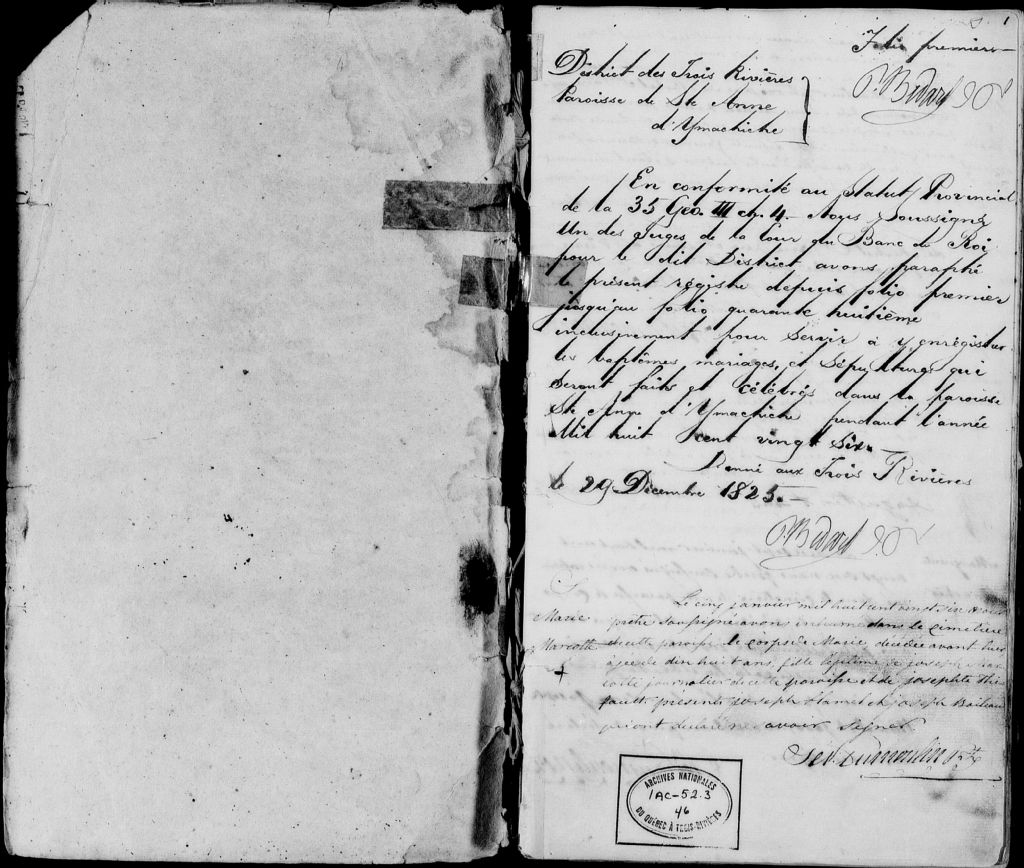 1
Folio premier
P. Bedard
District des Trois Rivières
Paroisse de Ste Anne
d'Ymachiche
En conformité au Statut Provincial
de la 35 Geo. III ch. 4. Nous Soussigné
Un des Juges de la Cour du Banc du Roi
pour le dit District avons paraphé
le présent régistre depuis folio premier
jusqu'au folio quarante huitième
inclusivement pour servir à y enrégistrer
les baptêmes, mariages, et Sépultures qui
seront faits et célébrés dans la paroisse
Ste Anne d'Ymachiche pendant l'année
Mil huit cent vingt six.
Donné aux Trois Rivières
le 29 Décembre 1825.
P. Bedard
S.
Marie
Marcotte
+
Le cinq janvier mil huit cent vingt six nous
prêtre soussigné avons inhumé dans le cimetière
de cette paroisse le corps de Marie décédée avant hier
agée de dix huit ans, fille légitime de joseph Mar
cotte journalier de cette paroisse et de josephte
presents joseph Hamel et joseph Boileau
qui ont déclaré ne avoir signer
Sev. Dumoulin Ptre
ARCHIVES NATIONALES
1AC-52.3
46
DU QUÉBEC À TROIS-RIVIÈRES